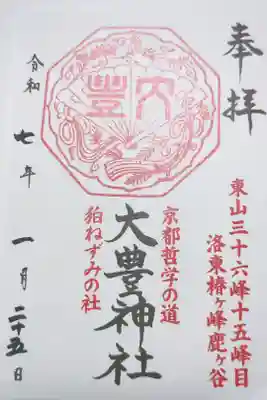 奉拝
東山三十六峰十五峰目
洛東椿ヶ峰鹿ヶ谷
京都哲学の道
大豊神社
狛ねずみの社
大豊
令和七年一月二十五日